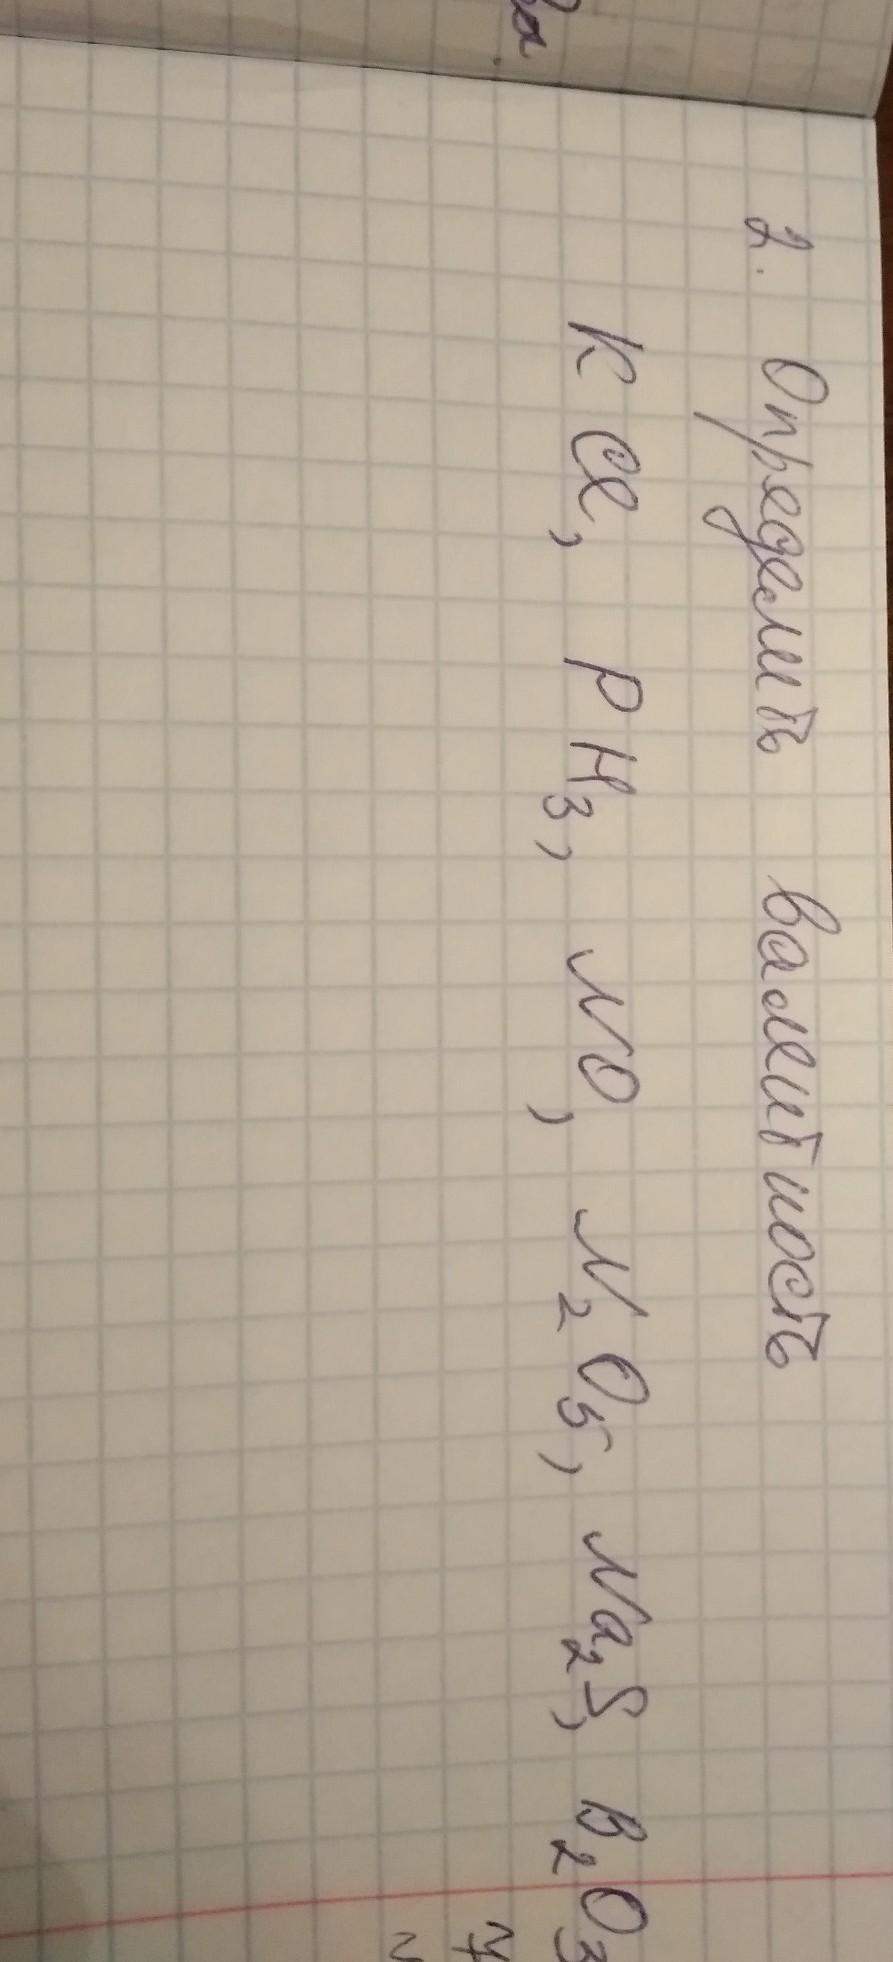 2. Определить валентность
KCl, PH₃, NO, N₂O₅, Na₂S, B₂O₃